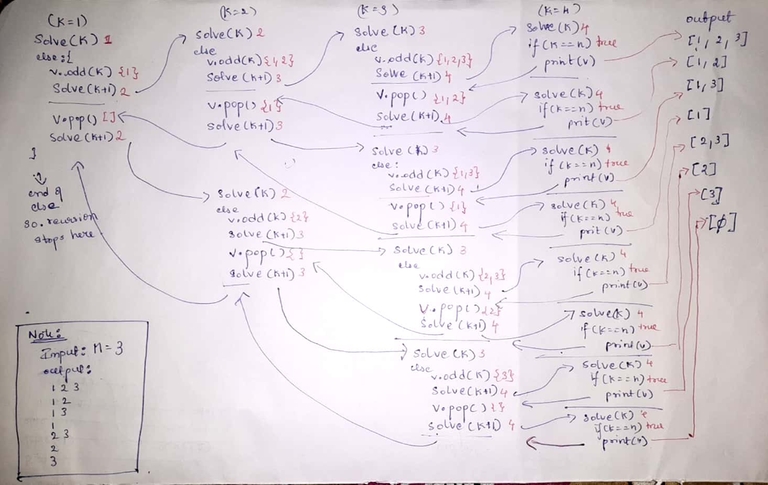 (K=1)
Solve(K) 1
else:{
v.add(K) {1}
Solve(K+1) 2
v.pop() []
Solve(K+1) 2
}
end of
else
so recursion
stops here.
(K=2)
Solve(K) 2
else
v.add(K) {1,2}
Solve(K+1) 3
v.pop() {1}
Solve(K+1) 3
Solve(K) 2
else
v.add(K) {2}
Solve(K+1) 3
v.pop() { }
Solve(K+1) 3
(K=3)
Solve(K) 3
else
v.add(K) {1,2,3}
Solve(K+1) 4
v.pop() {1,2}
Solve(K+1) 4
Solve(K) 3
else:
v.add(K) {1,3}
Solve(K+1) 4
v.pop() {1}
Solve(K+1) 4
Solve(K) 3
else
v.add(K) {2,3}
Solve(K+1) 4
v.pop() {2}
Solve(K+1) 4
Solve(K) 3
else
v.add(K) {3}
Solve(K+1) 4
v.pop() { }
Solve(K+1) 4
(K=4)
Solve(K) 4
if(K==n) true
print(v)
Solve(K) 4
if(K==n) true
prit(v)
Solve(K) 4
if(K==n) true
print(v)
Solve(K) 4
if(K==n) true
prit(v)
Solve(K) 4
if(K==n) true
print(v)
Solve(K) 4
if(K==n) true
print(v)
Solve(K) 4
if(K==n) true
print(v)
Solve(K) 4
if(K==n) true
print(v)
output
[1,2,3]
[1,2]
[1,3]
[1]
[2,3]
[2]
[3]
[ϕ]
Note:
Input: n=3
output:
1 2 3
1 2
1 3
1
2 3
2
3